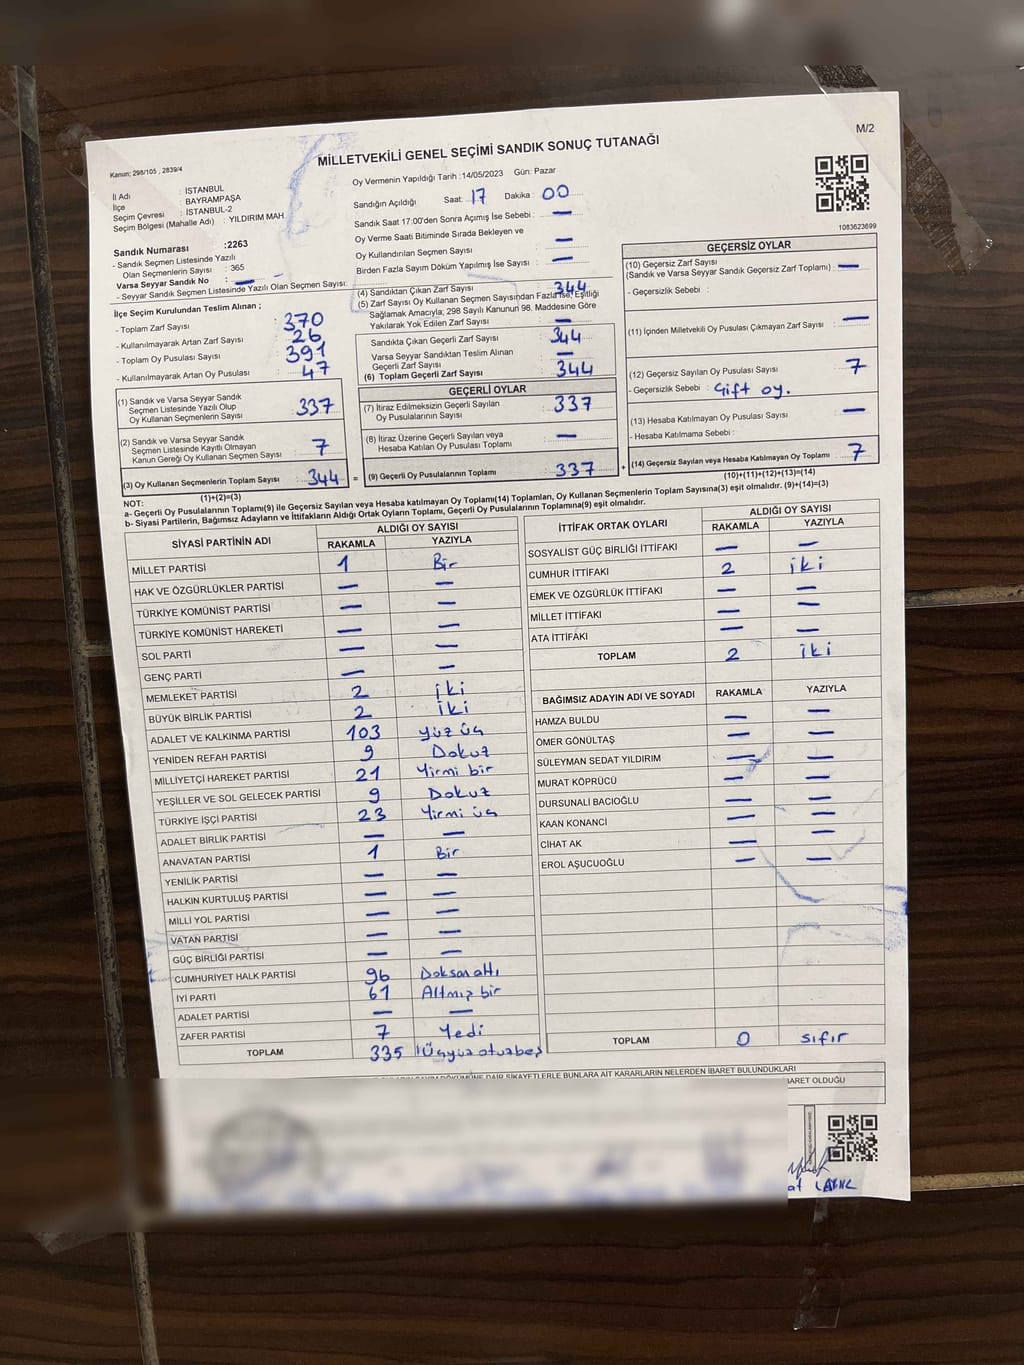 M/2
Kanun; 298/105 , 2839/4
MİLLETVEKİLİ GENEL SEÇİMİ SANDIK SONUÇ TUTANAĞI
İl Adı : İSTANBUL
İlçe : BAYRAMPAŞA
Seçim Çevresi : İSTANBUL-2
Seçim Bölgesi (Mahalle Adı) : YILDIRIM MAH.
Sandık Numarası :2263
- Sandık Seçmen Listesinde Yazılı
Olan Seçmenlerin Sayısı : 365
Varsa Seyyar Sandık No : —
- Seyyar Sandık Seçmen Listesinde Yazılı Olan Seçmen Sayısı:
Oy Vermenin Yapıldığı Tarih :14/05/2023 Gün: Pazar
Sandığın Açıldığı Saat: 17 Dakika : 00
Sandık Saat 17:00'den Sonra Açımış İse Sebebi : —
Oy Verme Saati Bitiminde Sırada Bekleyen ve
Oy Kullandırılan Seçmen Sayısı : —
Birden Fazla Sayım Döküm Yapılmış İse Sayısı : —
1083623699
İlçe Seçim Kurulundan Teslim Alınan ;
- Toplam Zarf Sayısı : 370
- Kullanılmayarak Artan Zarf Sayısı : 26
- Toplam Oy Pusulası Sayısı : 391
- Kullanılmayarak Artan Oy Pusulası : 47
(1) Sandık ve Varsa Seyyar Sandık
Seçmen Listesinde Yazılı Olup
Oy Kullanan Seçmenlerin Sayısı : 337
(2) Sandık ve Varsa Seyyar Sandık
Seçmen Listesinde Kayıtlı Olmayan
Kanun Gereği Oy Kullanan Seçmen Sayısı : 7
(3) Oy Kullanan Seçmenlerin Toplam Sayısı : 344
(1)+(2)=(3)
(4) Sandıktan Çıkan Zarf Sayısı : 344
(5) Zarf Sayısı Oy Kullanan Seçmen Sayısından Fazla ise, Eşitliği
Sağlamak Amacıyla; 298 Sayılı Kanunun 98. Maddesine Göre
Yakılarak Yok Edilen Zarf Sayısı : —
Sandıkta Çıkan Geçerli Zarf Sayısı : 344
Varsa Seyyar Sandıktan Teslim Alınan
Geçerli Zarf Sayısı : —
(6) Toplam Geçerli Zarf Sayısı : 344
GEÇERLİ OYLAR
(7) İtiraz Edilmeksizin Geçerli Sayılan
Oy Pusulalarının Sayısı : 337
(8) İtiraz Üzerine Geçerli Sayılan veya
Hesaba Katılan Oy Pusulası Toplamı : —
= (9) Geçerli Oy Pusulalarının Toplamı : 337 +
GEÇERSİZ OYLAR
(10) Geçersiz Zarf Sayısı
(Sandık ve Varsa Seyyar Sandık Geçersiz Zarf Toplamı) : —
- Geçersizlik Sebebi :
(11) İçinden Milletvekili Oy Pusulası Çıkmayan Zarf Sayısı : —
(12) Geçersiz Sayılan Oy Pusulası Sayısı : 7
- Geçersizlik Sebebi : Çift oy.
(13) Hesaba Katılmayan Oy Pusulası Sayısı : —
- Hesaba Katılmama Sebebi :
(14) Geçersiz Sayılan veya Hesaba Katılmayan Oy Toplamı : 7
(10)+(11)+(12)+(13)=(14)
NOT:
a- Geçerli Oy Pusulalarının Toplamı(9) ile Geçersiz Sayılan veya Hesaba katılmayan Oy Toplamı(14) Toplamları, Oy Kullanan Seçmenlerin Toplam Sayısına(3) eşit olmalıdır. (9)+(14)=(3)
b- Siyasi Partilerin, Bağımsız Adayların ve İttifakların Aldığı Ortak Oyların Toplamı, Geçerli Oy Pusulalarının Toplamına(9) eşit olmalıdır.
SİYASİ PARTİNİN ADI ALDIĞI OY SAYISI
RAKAMLA YAZIYLA
MİLLET PARTİSİ 1 Bir
HAK VE ÖZGÜRLÜKLER PARTİSİ — —
TÜRKİYE KOMÜNİST PARTİSİ — —
TÜRKİYE KOMÜNİST HAREKETİ — —
SOL PARTİ — —
GENÇ PARTİ — —
MEMLEKET PARTİSİ 2 iki
BÜYÜK BİRLİK PARTİSİ 2 iki
ADALET VE KALKINMA PARTİSİ 103 yüz üç
YENİDEN REFAH PARTİSİ 9 Dokuz
MİLLİYETÇİ HAREKET PARTİSİ 21 Yirmi bir
YEŞİLLER VE SOL GELECEK PARTİSİ 9 Dokuz
TÜRKİYE İŞÇİ PARTİSİ 23 Yirmi üç
ADALET BİRLİK PARTİSİ — —
ANAVATAN PARTİSİ 1 Bir
YENİLİK PARTİSİ — —
HALKIN KURTULUŞ PARTİSİ — —
MİLLİ YOL PARTİSİ — —
VATAN PARTİSİ — —
GÜÇ BİRLİĞİ PARTİSİ — —
CUMHURİYET HALK PARTİSİ 96 Doksan altı
İYİ PARTİ 61 Altmış bir
ADALET PARTİSİ — —
ZAFER PARTİSİ 7 Yedi
TOPLAM 335 Üçyüz otuzbeş
İTTİFAK ORTAK OYLARI ALDIĞI OY SAYISI
RAKAMLA YAZIYLA
SOSYALİST GÜÇ BİRLİĞİ İTTİFAKI — —
CUMHUR İTTİFAKI 2 iki
EMEK VE ÖZGÜRLÜK İTTİFAKI — —
MİLLET İTTİFAKI — —
ATA İTTİFAKI — —
TOPLAM 2 iki
BAĞIMSIZ ADAYIN ADI VE SOYADI RAKAMLA YAZIYLA
HAMZA BULDU — —
ÖMER GÖNÜLTAŞ — —
SÜLEYMAN SEDAT YILDIRIM — —
MURAT KÖPRÜCÜ — —
DURSUNALİ BACIOĞLU — —
KAAN KONANCİ — —
CİHAT AK — —
EROL AŞUCUOĞLU — —
TOPLAM 0 sıfır
DÖKÜMÜNE DAİR ŞİKAYETLERLE BUNLARA AİT KARARLARIN NELERDEN İBARET BULUNDUKLARI
İBARET OLDUĞU